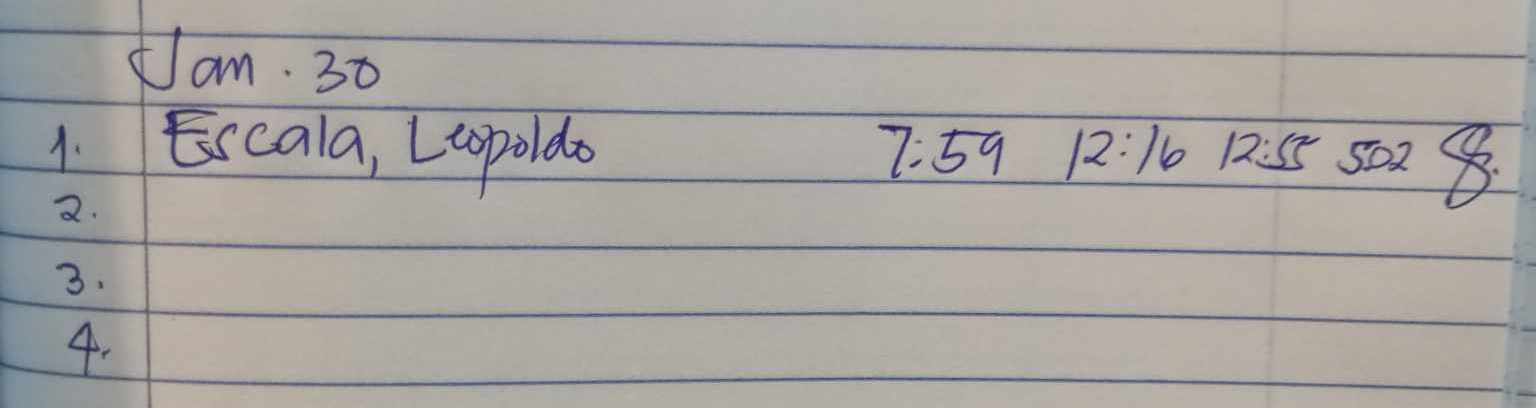 Jan. 30
1. Escala, Leopoldo 7:59 12:16 12:55 502
2.
3.
4.